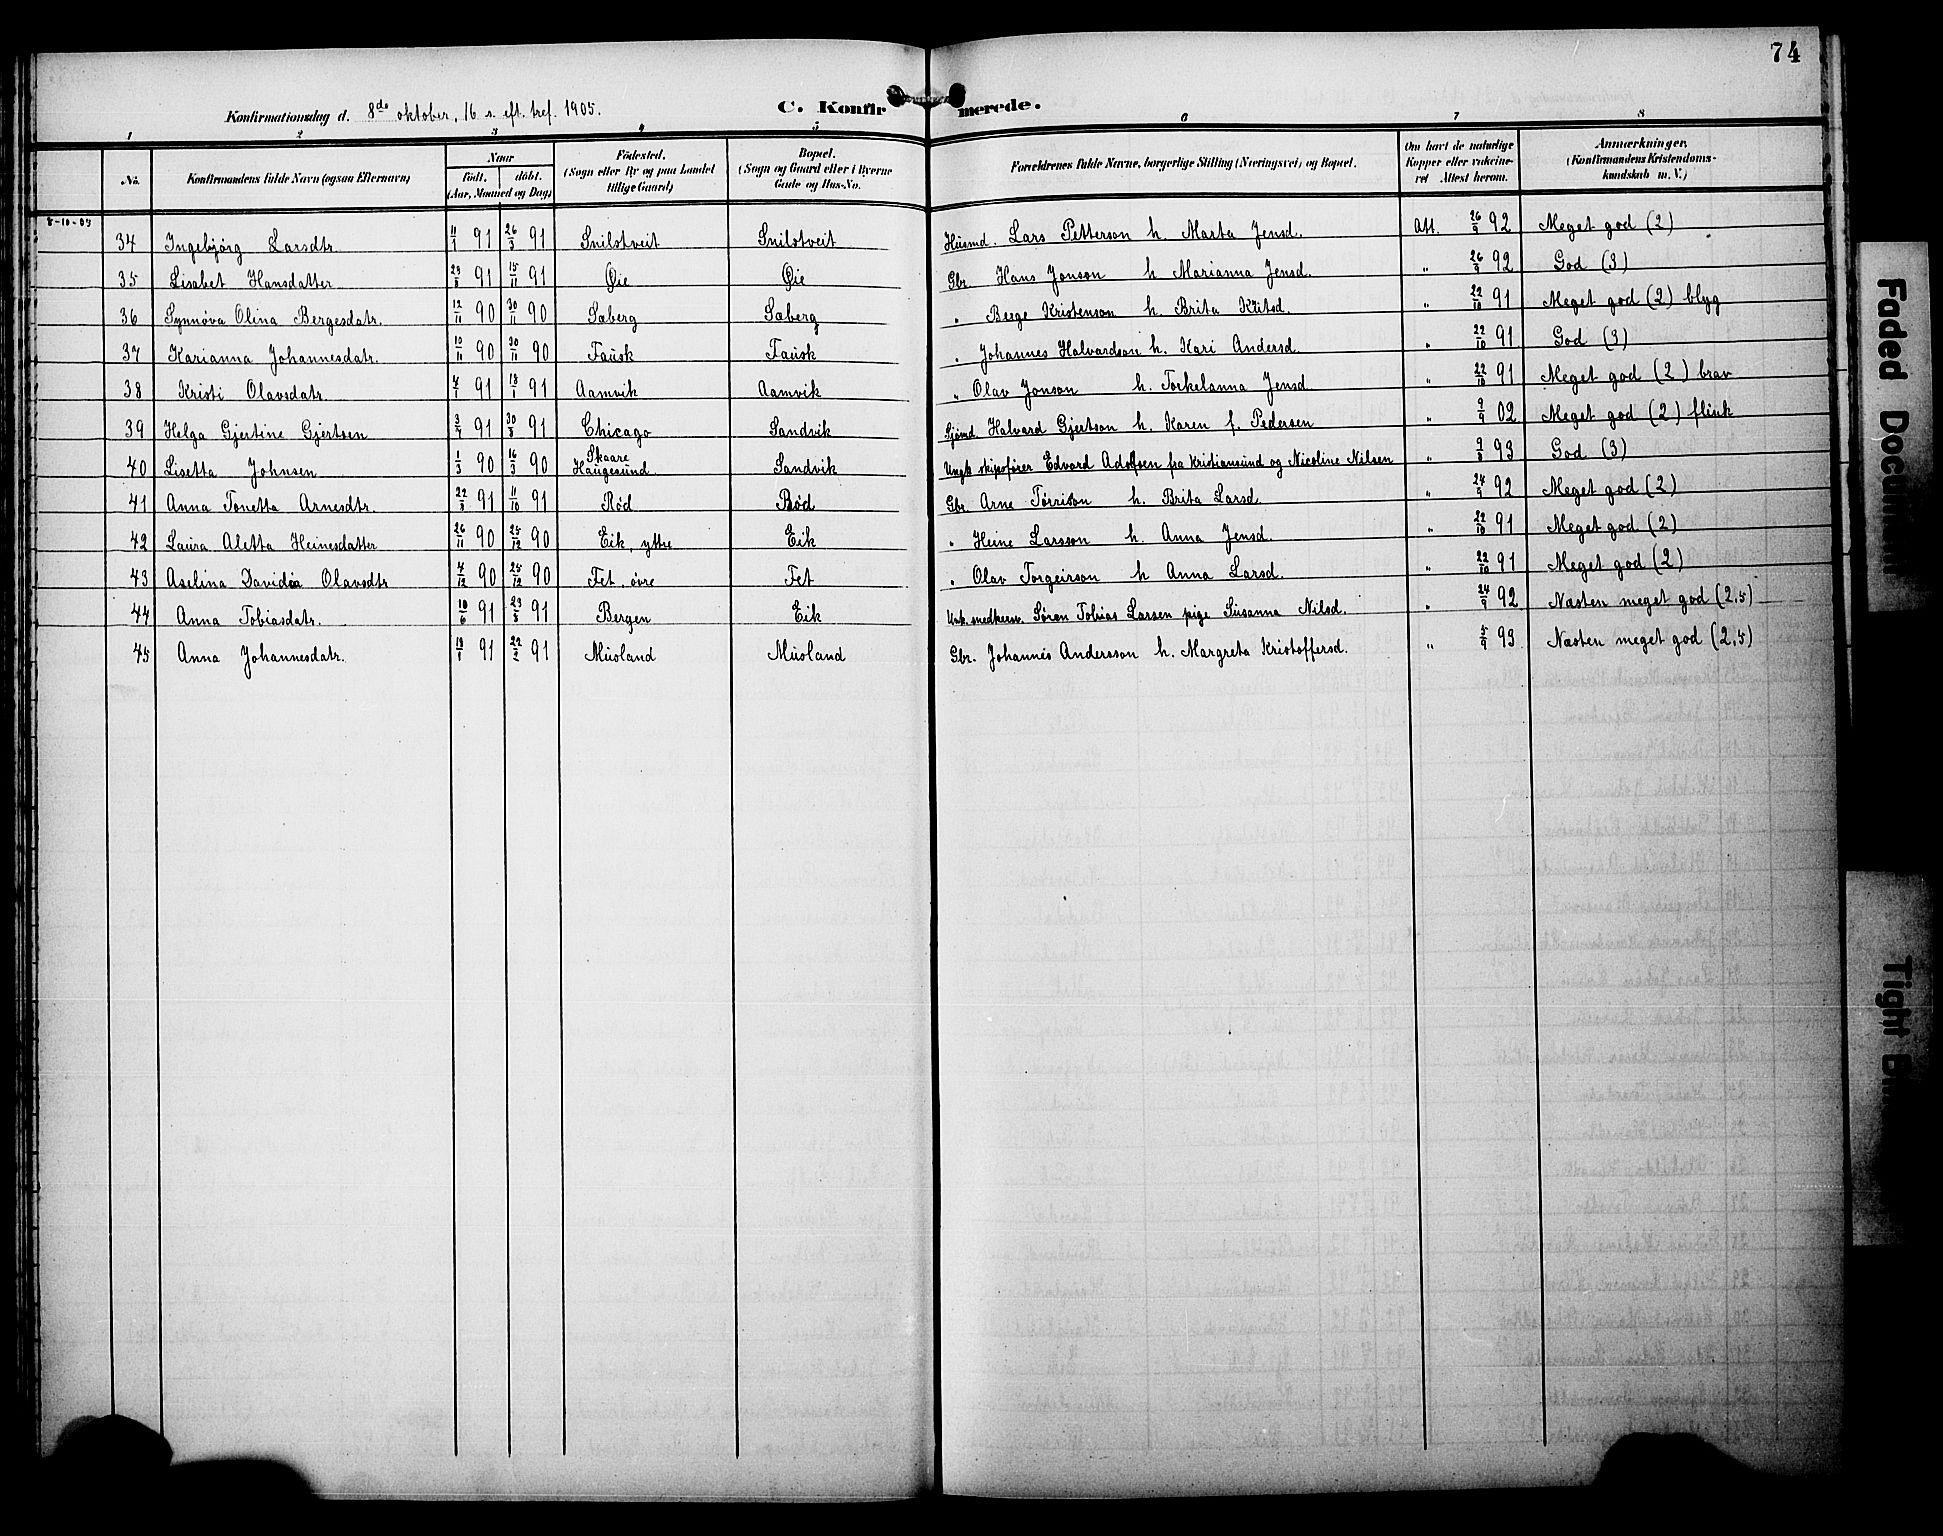 74
Konfirmationsdag d. 8de oktober, 16 s. eft. tref. 1905.
C. Konfirmerede.
1 2 3 4 5 6 7 8
No. Konfirmandens fulde Navn (ogsaa Efternavn) Naar Födt. döbt. (Aar, Maaned og Dag) Födested. (Sogn eller By og paa Landet tillige Gaard) Bopæl. (Sogn og Gaard eller i Byerne Gade og Hus-No. Forældrenes fulde Navne, borgerlige Stilling (Næringsvei) og Bopæl. Om havt de naturlige Kopper eller vakcineret Attest herom. Anmærkninger, (Konfirmandens Kristendomskundskab m. V.)
34 Ingebjörg Larsdtr. 91 26/3 91 Snilstveit Snilstveit Husmd. Lars Petterson h. Marta Jensd. Att. 26/9 92 Meget god (2)
35 Lisabet Hansdatter 91 15/11 91 Øie Øie Gbr. Hans Jonson h Marianna Jensd. " 26/9 92 God (3)
36 Synnöva Olina Bergesdatr. 12/11 90 30/11 90 Sæberg Sæberg " Berge Kristenson h. Brita Knutsd. " 22/10 91 Meget god (2) blyg
37 Karianna Johannesdatr. 10/11 90 30/11 90 Fausk Fausk " Johannes Halvardson h. Kari Andersd. " 22/10 91 God (3)
38 Kristi Olavsdatr. 91 18/1 91 Aamvik Aamvik " Olav Jonson h. Torkelanna Jensd " 22/10 91 Meget god (2) brav
39 Helga Gjertine Gjertsen 91 91 Chicago Sandvik Sjömd. Halvard Gjertson h. Karen f. Pedersen " 9/9 02 Meget god (2) flink
40 Lisetta Johnsen 1/3 90 16/3 90 Skaare Haugesund Sandvik Ungk. skipsförer Edvard Adolfsen fra Kristiansund og Nicoline Nilsen " 93 God (3)
41 Anna Tonetta Arnesdtr. 91 11/10 91 Röd Röd Gbr. Arne Törrison h. Brita Larsd. " 24/9 92 Meget god (2)
42 Laura Aletta Heinesdatter 26/11 90 25/12 90 Eik, ytre Eik " Heine Larsson h. Anna Jensd. " 22/10 91 Meget god (2)
43 Aselina Davidia Olavsdtr 90 25/12 90 Fet, övre Fet " Olav Torgeirson h Anna Larsd. " 22/10 91 Meget god (2)
44 Anna Tobiasdatr. 91 91 Bergen Eik Unk. Sören Tobias Larsen pige Susanna Nilsd. " 24/9 92 Næsten meget god (2,5)
45 Anna Johannesdatr. 91 22/2 91 Musland Musland Gbr. Johannes Andersson h. Margreta Kristoffersd. " 93 Næsten meget god (2,5)
Faded Document
Tight